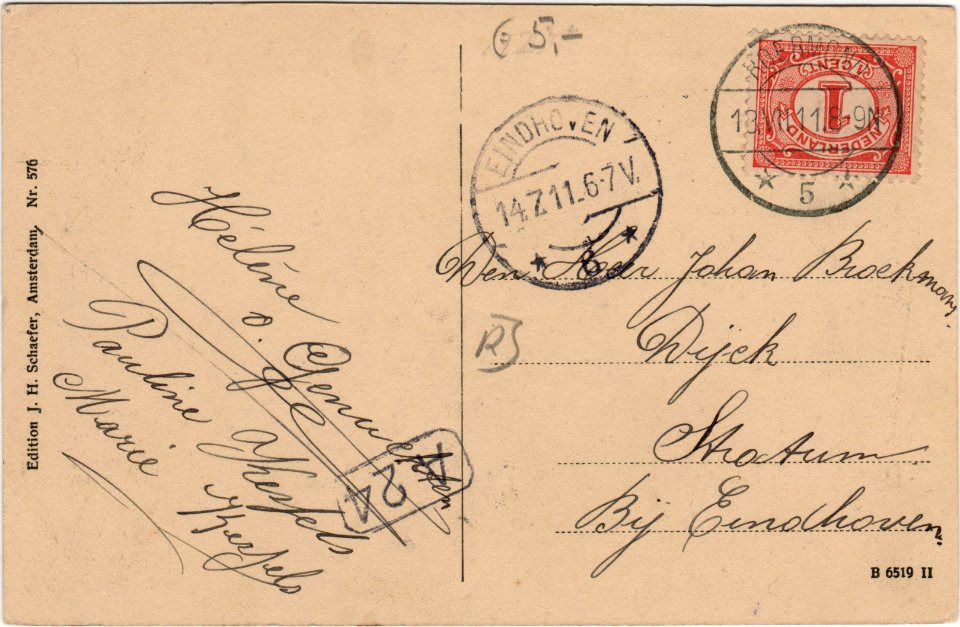 5,-
EINDHOVEN
14.7.11.6-7V.
8
ROERMOND
13 VII 11.8-9N
5
NEDERLAND
1 CENT
1
Edition J. H. Schaefer, Amsterdam, Nr. 576
Hélène
v.
Pauline
Marie
A24
Den Heer Johan Broekman,
Dijck
Stratum
Bij Eindhoven.
B 6519 II